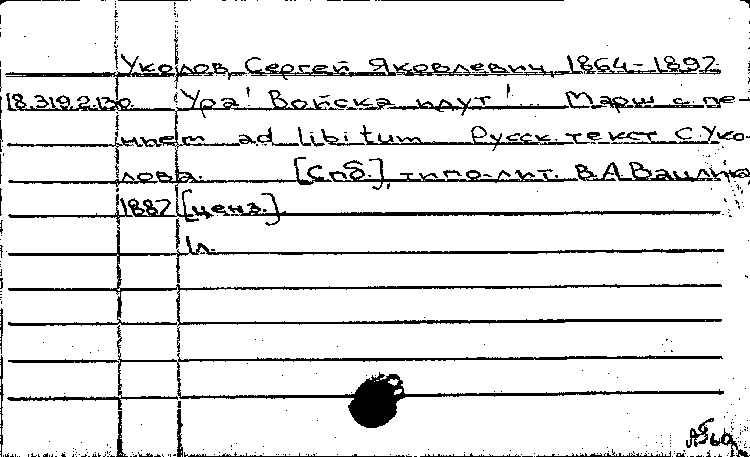 Уколов, Сергей Яковлевич, 1864-1892
18.319.2.130 Ура! Войска идут!... Марш с пе-
нием ad libitum. Русск. текст С. Уко-
лова. [Спб.], типо-лит. В.А. Вацлика,
1887 [ценз.].
1л.